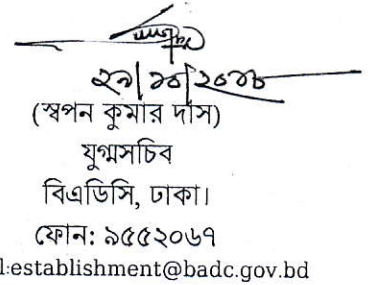 ২৯/১০/২০১৮
(স্বপন কুমার দাস)
যুগ্মসচিব
বিএডিসি, ঢাকা।
ফোন: ৯৫৫২০৬৭
l:establishment@badc.gov.bd